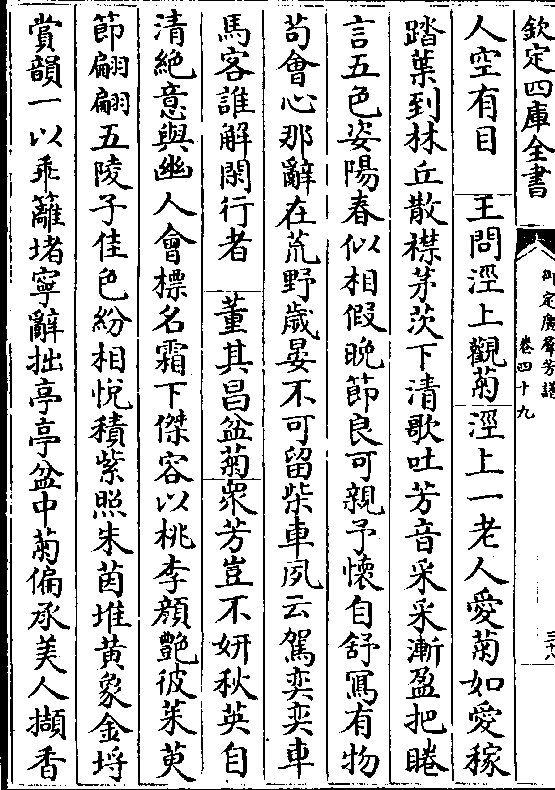 欽定四庫全書
御定廣羣芳譜
卷四十九
三十八
人空有目 王問涇上觀菊 涇上一老人愛菊如愛稼
踏葉到林丘散襟茅茨下清歌吐芳音采采漸盈把睠
言五色姿陽春似相假晚節良可親予懷自舒寫有物
茍會心那辭在荒野歲晏不可留柴車夙云駕奕奕車
馬客誰解閑行者 董其昌盆菊 衆芳豈不妍秋英自
清絶意與幽人會標名霜下傑容以桃李顔艷彼茱萸
節翩翩五陵子佳色紛相悅積紫照朱茵堆黄象金埒
賞韻一以乖籬堵寧辭拙亭亭盆中菊偏承美人擷香